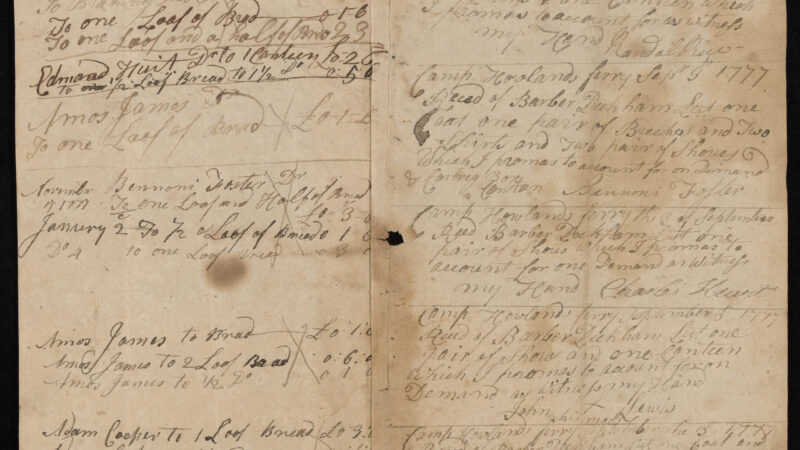 To one Loof of Bread 0 5 6
To one Loof and a half of Bread 2 3
Edmund Dr to 1 Canteen to 2 6
to 1/2 Loof Bread to 1 1/2 Do 0: 5 0
Amos James Dr
To one Loof of Brad £0-1-6
November Bennoni Foster Dr
1777 To one Loof and Half of Bread
£0-3-0
January 2 To 1/2 a Loof of Bread 0 1 6
Do 4 to one Loof Bread 0 3 0
Amos James to Brad £0 1:6
Amos James to 2 Loof Bread 0:6:0
Amos James to 1/2 Do 0 1
Adam Cooper to 1 Loof Bread £0-3:
Canteen which
I promas to account for as witness
my Hand
Randal
Camp Howlands ferry Sepr 1777
Reced of Barber Peckham Lut one
Coat one pair of Breeches and Two
Shirts and Two pair of Shoues
which I promas to account for on Demand
& Box
Bennoni Foster
Camp Howlands ferry the 3 of September
Reced Barber Peckham Lut one
pair of Shous which I promas to
account for one Demand as witness
my Hand Charls
Camp Howlands ferry September 3 1777
Reced of Barber Peckham Lut one
pair of Shous and one Canteen
which I promas to account for on
Demand as witness my Hand
John Lewis
Camp Howlands ferry 1777
Reced of Barber Peckham Lut one Coat and